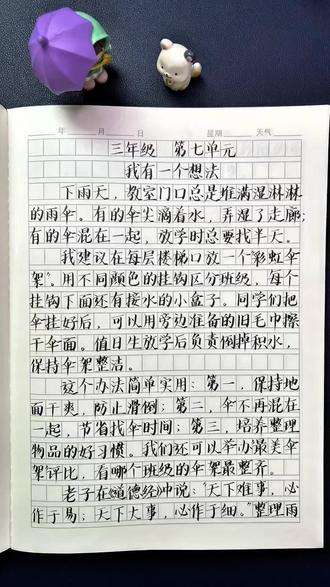 年 月 日 星期 天气
三年级 第七单元
我有一个想法
下雨天，教室门口总是堆满湿淋淋
的雨伞。有的伞尖滴着水，弄湿了走廊；
有的伞混在一起，放学时总要找半天。
我建议在每层楼梯口放一个“彩虹伞
架”。用不同颜色的挂钩区分班级，每个
挂钩下面还有接水的小盒子。同学们把
伞挂好后，可以用旁边准备的旧毛巾擦
干伞面。值日生放学后负责倒掉积水，
保持伞架整洁。
这个办法简单实用：第一，保持地
面干爽，防止滑倒；第二，伞不再混在
一起，节省找伞时间；第三，培养整理
物品的好习惯。我们还可以举办最美伞
架评比，看哪个班级的伞架最整齐。
老子在《道德经》中说：“天下难事，必
作于易；天下大事，必作于细。”整理雨